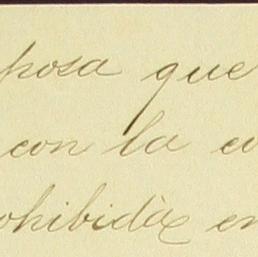 posa que
con la
ohibida en